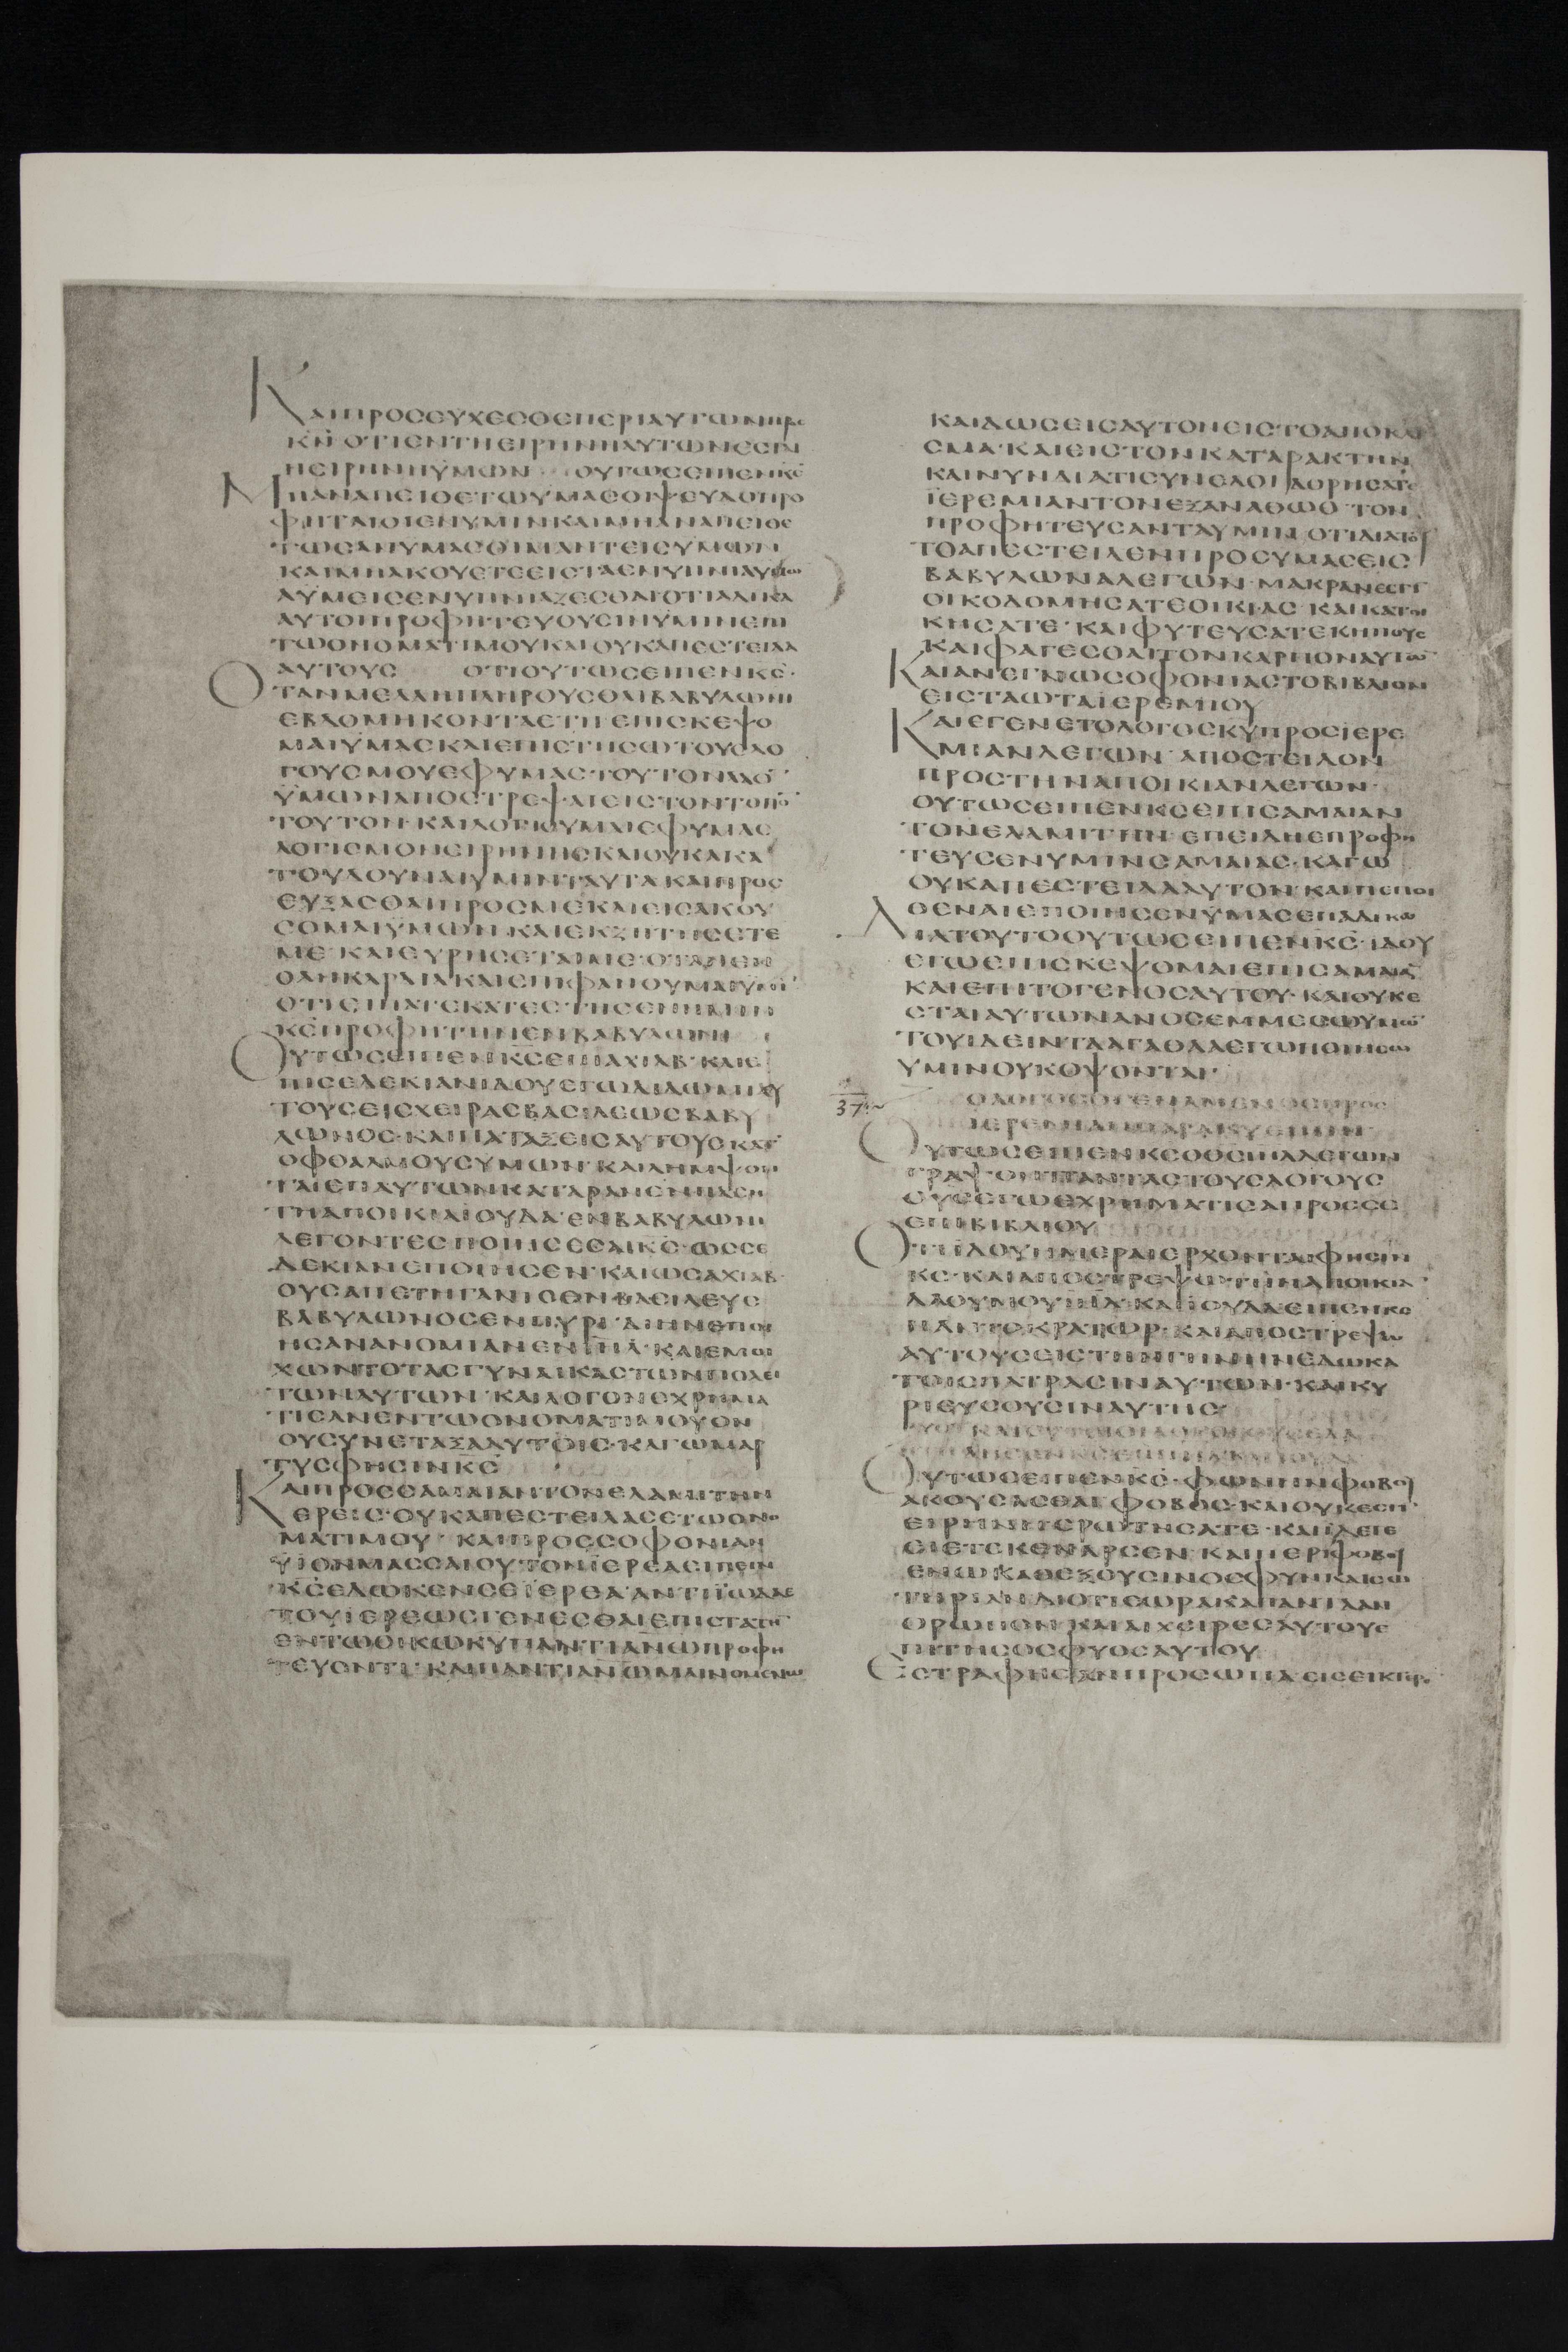 ΚΑΙΠΡΟΣΕΥΧΕΣΘΕΠΕΡΙΑΥΤΩΝΠΡΟΣ
ΚΝ ΟΤΙΕΝΤΗΕΙΡΗΝΗΑΥΤΩΝΕΣΤΑΙ
ΗΕΙΡΗΝΗΫΜΩΝ ΟΥΤΩΣΕΙΠΕΝΚΣ
ΤΩΟΝΟΜΑΤΙΜΟΥΚΑΙΟΥΚΑΠΕΣΤΕΙΛΑ
ΑΥΤΟΥΣ ΟΤΙΟΥΤΩΣΕΙΠΕΝΚΣ·
ΟΤΑΝΜΕΛΛΗΠΛΗΡΟΥΣΘΑΙΒΑΒΥΛΩΝΙ
ΕΒΔΟΜΗΚΟΝΤΑΕΤΗΕΠΙΣΚΕΨΟ
ΜΑΙΫΜΑΣΚΑΙΕΠΙΣΤΗΣΩΤΟΥΣΛΟ
ΓΟΥΣΜΟΥΕΦΥΜΑΣΤΟΥΤΟΝΛΑΟ
ΥΜΩΝΑΠΟΣΤΡΕΨΑΙΕΙΣΤΟΝΤΟΠΟ
ΤΟΥΤΟΝ·ΚΑΙΛΟΓΙΟΥΜΑΙΕΦΥΜΑΣ
ΛΟΓΙΣΜΟΝΕΙΡΗΝΗΣΚΑΙΟΥΚΑΚΑ
ΤΟΥΔΟΥΝΑΙΥΜΙΝΤΑΥΤΑΚΑΙΠΡΟΣ
ΕΥΞΑΣΘΑΙΠΡΟΣΜΕΚΑΙΕΙΣΑΚΟΥ
ΣΟΜΑΙΫΜΩΝ·ΚΑΙΕΚΖΗΤΗΣΕΤΕ
ΚΣΠΡΟΦΗΤΗΝΕΝΒΑΒΥΛΩΝΙ
ΟΥΤΩΣΕΙΠΕΝΚΣΕΠΙΑΧΙΑΒ·ΚΑΙΕ
ΠΙΣΕΔΕΚΙΑΝΙΔΟΥΕΓΩΔΙΔΩΜΙΑΥ
ΤΟΥΣΕΙΣΧΕΙΡΑΣΒΑΣΙΛΕΩΣΒΑΒΥ
ΛΩΝΟΣ·ΚΑΙΠΑΤΑΞΕΙΣΑΥΤΟΥΣΚΑΤ
ΟΦΘΑΛΜΟΥΣΥΜΩΝ·ΚΑΙΛΗΜΨΟΝ
ΤΗΑΠΟΙΚΙΑΙΟΥΔΑ·ΕΝΒΑΒΥΛΩΝΙ
ΛΕΓΟΝΤΕΣΠΟΙΗΣΕΣΑΙΚΣ·ΩΣΣΕ
ΔΕΚΙΑΝΕΠΟΙΗΣΕΝ·ΚΑΙΩΣΑΧΙΑΒ·
ΟΥΣΑΠΕΤΗΓΑΝΙΣΕΝΒΑΣΙΛΕΥΣ
ΒΑΒΥΛΩΝΟΣΕΝΠΥΡΙ·ΔΙΗΝΕΠΟΙ
ΗΣΑΝΑΝΟΜΙΑΝΕΝΙΗΛ·ΚΑΙΕΜΟΙ
ΧΩΝΤΟΤΑΣΓΥΝΑΙΚΑΣΤΩΝΠΟΛΕΙ
ΤΩΝΑΥΤΩΝ·ΚΑΙΛΟΓΟΝΕΧΡΗΜΑ
ΤΙΣΑΝΕΝΤΩΟΝΟΜΑΤΙΜΟΥΟΝ
ΟΥΣΥΝΕΤΑΞΑΑΥΤΟΙΣ·ΚΑΓΩΜΑΡ
ΤΥΣΦΗΣΙΝΚΣ
ΚΑΙΠΡΟΣΣΑΜΑΙΑΝΤΟΝΕΛΑΜΙΤΗΝ
ΕΡΕΙΣ·ΟΥΚΑΠΕΣΤΕΙΛΑΣΕΤΩΟΝΟ
ΜΑΤΙΜΟΥ· ΚΑΙΠΡΟΣΣΟΦΟΝΙΑΝ
ΥΙΟΝΜΑΣΣΑΙΟΥΤΟΝΙΕΡΕΑΕΙΠΕΙΝ
ΚΣΕΔΩΚΕΝΣΕΪΕΡΕΑ·ΑΝΤΙΪΩΔΑΕ
ΤΟΥΙΕΡΕΩΣΓΕΝΕΣΘΑΙΕΠΙΣΤΑΤΗ
ΕΝΤΩΟΙΚΩΚΥΠΑΝΤΙΑΝΩΠΡΟΦΗ
ΤΕΥΟΝΤΙ·ΚΑΙΠΑΝΤΙΑΝΩΜΑΙΝΟΜΕΝΩ
ΚΑΙΔΩΣΕΙΣΑΥΤΟΝΕΙΣΤΟΑΠΟΚΛΕΙ
ΣΜΑ·ΚΑΙΕΙΣΤΟΝΚΑΤΑΡΑΚΤΗΝ
ΚΑΙΝΥΝΔΙΑΤΙΣΥΝΕΛΟΙΔΟΡΗΣΑΤΕ
ΪΕΡΕΜΙΑΝΤΟΝΕΞΑΝΑΘΩΘ·ΤΟΝ
ΠΡΟΦΗΤΕΥΣΑΝΤΑΥΜΙΝ·ΟΤΙΔΙΑΤΟΥ
ΤΟΑΠΕΣΤΕΙΛΕΝΠΡΟΣΥΜΑΣΕΙΣ
ΒΑΒΥΛΩΝΑΛΕΓΩΝ·ΜΑΚΡΑΝΕΣΤΙ
ΟΙΚΟΔΟΜΗΣΑΤΕΟΙΚΙΑΣ·ΚΑΙΚΑΤΟΙ
ΚΗΣΑΤΕ·ΚΑΙΦΥΤΕΥΣΑΤΕΚΗΠΟΥΣ
ΚΑΙΦΑΓΕΣΘΑΙΤΟΝΚΑΡΠΟΝΑΥΤΩ
ΚΑΙΑΝΕΓΝΩΣΟΦΟΝΙΑΣΤΟΒΙΒΛΙΟΝ
ΕΙΣΤΑΩΤΑΪΕΡΕΜΙΟΥ
ΚΑΙΕΓΕΝΕΤΟΛΟΓΟΣΚΥΠΡΟΣΙΕΡΕ
ΜΙΑΝΛΕΓΩΝ·ΑΠΟΣΤΕΙΛΟΝ
ΠΡΟΣΤΗΝΑΠΟΙΚΙΑΝΛΕΓΩΝ·
ΟΥΤΩΣΕΙΠΕΝΚΣΕΠΙΣΑΜΑΙΑΝ
ΤΟΝΕΛΑΜΙΤΗΝ·ΕΠΕΙΔΗΕΠΡΟΦΗ
ΤΕΥΣΕΝΥΜΙΝΣΑΜΑΙΑΣ·ΚΑΓΩ
ΟΥΚΑΠΕΣΤΕΙΛΑΑΥΤΟΝ·ΚΑΙΠΕΠΟΙ
ΘΕΝΑΙΕΠΟΙΗΣΕΝΫΜΑΣΕΠΑΔΙΚΩ
ΔΙΑΤΟΥΤΟΟΥΤΩΣΕΙΠΕΝΚΣ·ΙΔΟΥ
ΕΓΩΕΠΙΣΚΕΨΟΜΑΙΕΠΙΣΑΜΑΙΑ
ΚΑΙΕΠΙΤΟΓΕΝΟΣΑΥΤΟΥ·ΚΑΙΟΥΚΕ
ΣΤΑΙΑΥΤΩΝΑΝΟΣΕΜΜΕΣΩΥΜΩ
ΤΟΥΙΔΕΙΝΤΑΑΓΑΘΑΑΕΓΩΠΟΙΗΣΩ
ΥΜΙΝΟΥΚΟΨΟΝΤΑΙ·
37
ΟΥΤΩΣΕΙΠΕΝΚΣΟΘΣΙΗΛΛΕΓΩΝ
ΓΡΑΨΟΝΠΑΝΤΑΣΤΟΥΣΛΟΓΟΥΣ
ΟΥΣΕΓΩΕΧΡΗΜΑΤΙΣΑΠΡΟΣΣΕ
ΕΠΙΒΙΒΛΙΟΥ
ΟΤΙΪΔΟΥΗΜΕΡΑΙΕΡΧΟΝΤΑΙΦΗΣΙΝ
ΚΣ·ΚΑΙΑΠΟΣΤΡΕΨΩΤΗΝΑΠΟΙΚΙΑ
ΛΑΟΥΜΟΥΙΗΛ·ΚΑΙΙΟΥΔΑΕΙΠΕΝΚΣ
ΠΑΝΤΟΚΡΑΤΩΡ·ΚΑΙΑΠΟΣΤΡΕΨΩ
ΑΥΤΟΥΣΕΙΣΤΗΝΓΗΝΗΝΕΔΩΚΑ
ΤΟΙΣΠΑΤΡΑΣΙΝΑΥΤΩΝ·ΚΑΙΚΥ
ΡΙΕΥΣΟΥΣΙΝΑΥΤΗΣ
ΟΥΤΩΣΕΙΠΕΝΚΣ·ΦΩΝΗΝΦΟΒΟΥ
ΑΚΟΥΣΑΣΘΑΙ·ΦΟΒΟΣ·ΚΑΙΟΥΚΕΣΤΙ
ΕΙΡΗΝΗ·ΕΡΩΤΗΣΑΤΕ·ΚΑΙΙΔΕΤΕ
ΕΙΕΤΕΚΕΝΑΡΣΕΝ·ΚΑΙΠΕΡΙΦΟΒΟΥ
ΕΝΩΚΑΘΕΞΟΥΣΙΝΟΣΦΥΝΚΑΙΣΩ
ΤΗΡΙΑΝ·ΔΙΟΤΙΕΩΡΑΚΑΠΑΝΤΑΑΝ
ΘΡΩΠΟΝ·ΚΑΙΑΙΧΕΙΡΕΣΑΥΤΟΥΕ
ΠΙΤΗΣΟΣΦΥΟΣΑΥΤΟΥ
ΕΣΤΡΑΦΗΣΑΝΠΡΟΣΩΠΑΕΙΣΕΙΚΤΕΡΟ